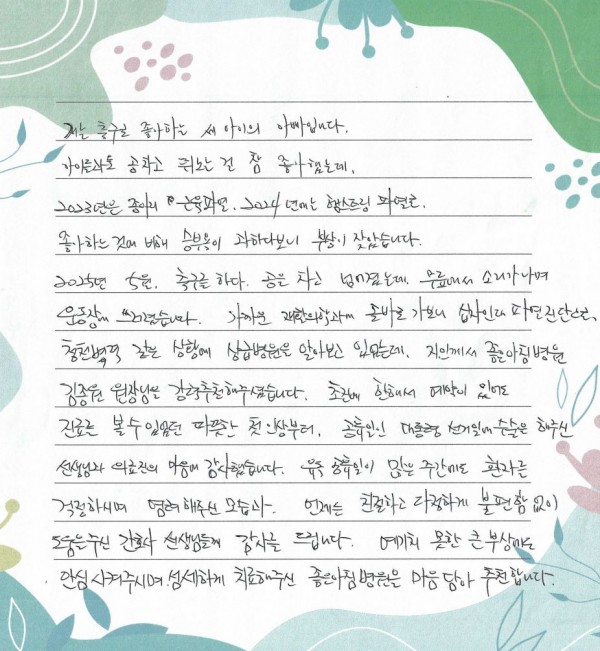 저는 축구를 좋아하는 세 아이의 아빠입니다.
아이들과도 공차고 뛰노는 걸 참 좋아했는데,
2023년은 종아리 근육파열, 2024년에는 햄스트링 파열로
좋아하는 것에 비해 승부욕이 과하다보니 부상이 잦았습니다.
2025년 5월, 축구를 하다. 공을 차고 넘어졌는데, 무릎에서 소리가 나며
운동장에 쓰러졌습니다. 가까운 재활의학과에 곧바로 가보니 십자인대 파열 진단으로,
청천벽력 같은 상황에 상급병원을 알아보고 있었는데, 지인께서 좋은아침병원
김종원 원장님을 강력추천해주셨습니다. 초진에 한해서 예약이 없어도
진료를 볼 수 있었던 따뜻한 첫 인상부터, 공휴일인 대통령 선거일에 수술을 해주신
선생님과 의료진의 마음에 감사했습니다. 유독 휴일이 많은 주간에도 환자를
걱정하시며 염려해주신 모습과, 언제든 친절하고 다정하게 불편함 없이
도움을 주신 간호사 선생님들께 감사를 드립니다. 예기치 못한 큰 부상에도
안심시켜주시며 섬세하게 치료해주신 좋은아침병원을 마음 담아 추천합니다.